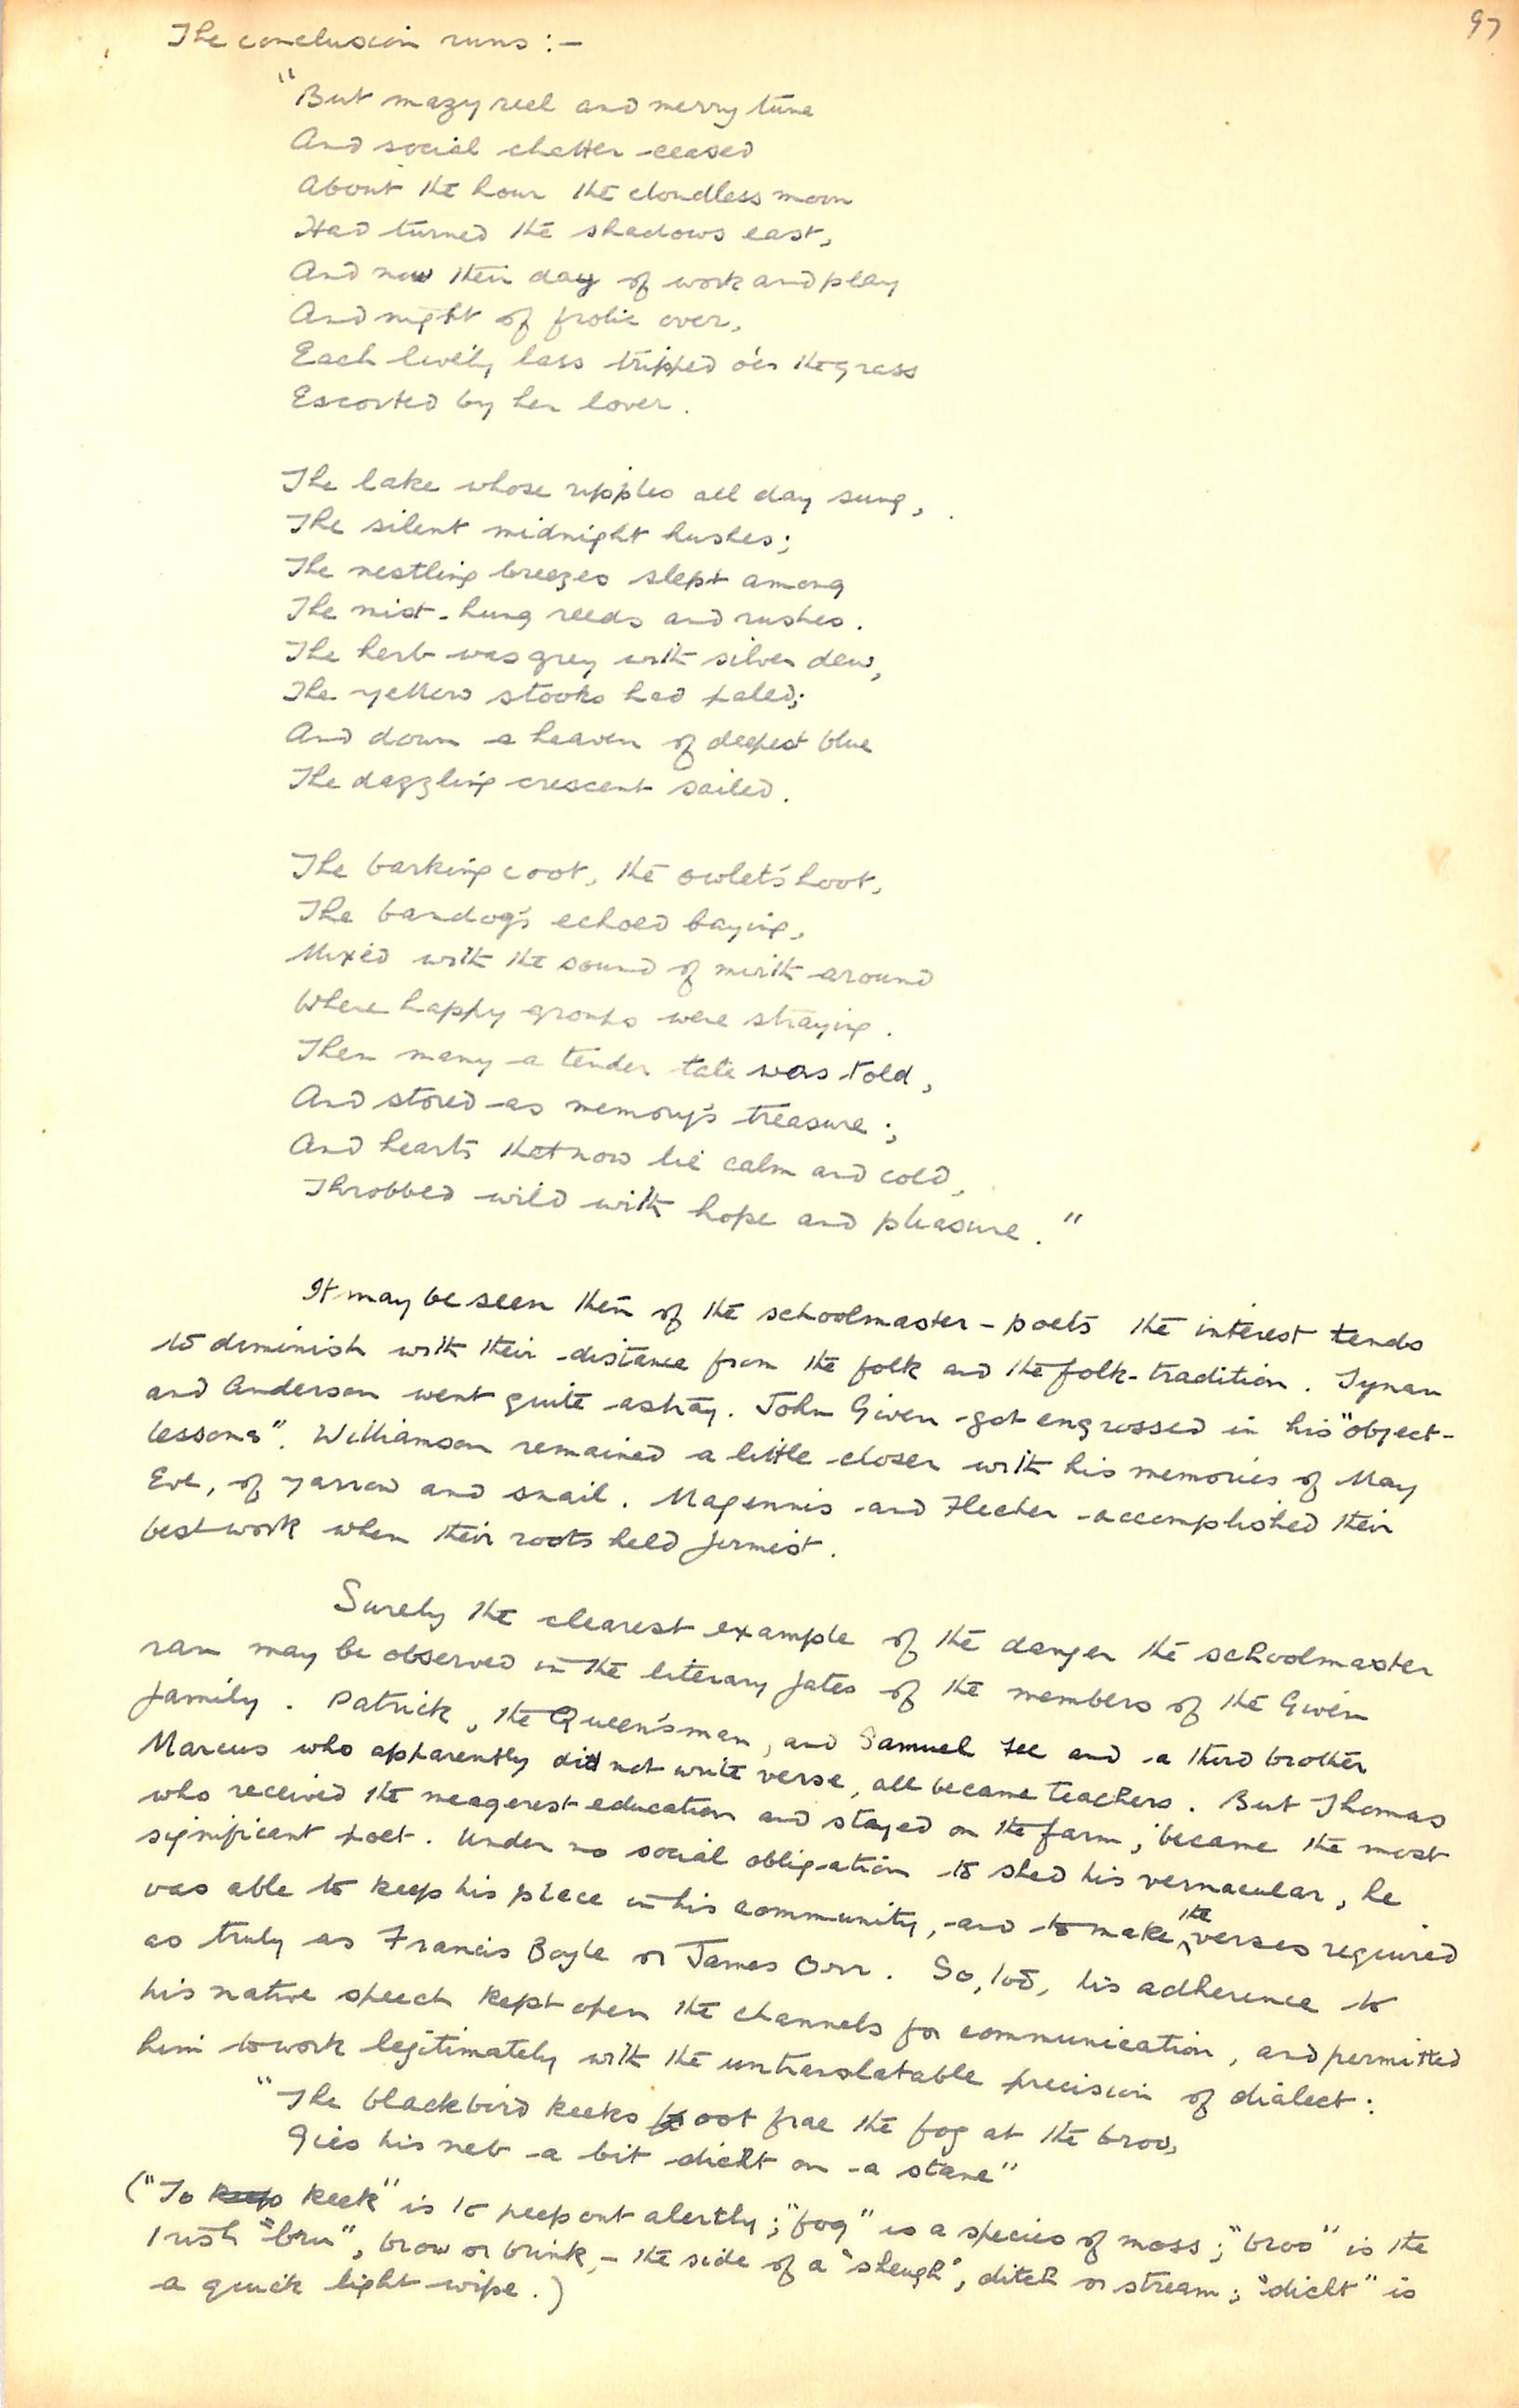 97
The conclusion runs :-
"But mazy reel and merry tune
And social chatter ceased
About the hour the cloudless moon
Had turned the shadows east,
And now their day of work and play
And night of frolic over,
Each lively lass tripped o'er the grass
Escorted by her lover.
The lake whose ripples all day sung,
The silent midnight hushes;
The nestling breezes slept among
The mist-hung reeds and rushes.
The herb was grey with silver dew,
The yellow stooks had paled;
And down a heaven of deepest blue
The dazzling crescent sailed.
The barking coot, the owlet's hoot,
The bandog's echoed baying,
Mixed with the sound of mirth around
Where happy groups were straying.
Then many a tender tale was told,
And stored as memory's treasure;
And hearts that now lie calm and cold,
Throbbed wild with hope and pleasure."
It may be seen then of the schoolmaster-poets the interest tends
to diminish with their distance from the folk and the folk-tradition. Tynan
and Anderson went quite astray. John Given got engrossed in his "object-
lessons". Williamson remained a little closer with his memories of May
Eve, of yarrow and snail. Magennis and Flecher accomplished their
best work when their roots held firmest.
Surely the clearest example of the danger the schoolmaster
ran may be observed in the literary fates of the members of the Given
family. Patrick, the Queen's man, and Samuel Fee and a third brother
Marcus who apparently did not write verse, all became teachers. But Thomas
who received the meagerest education and stayed on the farm, became the most
significant poet. Under no social obligation to shed his vernacular, he
was able to keep his place in his community, and to make the verses required
as truly as Francis Boyle or James Orr. So, too, his adherence to
his native speech kept open the channels for communication, and permitted
him to work legitimately with the untranslatable precision of dialect:
"The blackbird keeks oot frae the fog at the broo,
Gies his neb a bit dicht on a stane"
("To keek" is to peep out alertly; "fog" is a species of moss; "broo" is the
Irish "bru", brow or brink, - the side of a "sheugh", ditch or stream; "dicht" is
a quick light wipe.)